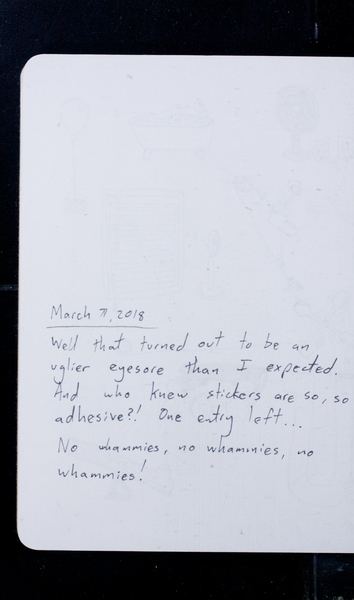 March π, 2018
Well that turned out to be an
uglier eyesore than I expected.
And who knew stickers are so, so
adhesive?! One entry left...
No whammies, no whammies, no
whammies!